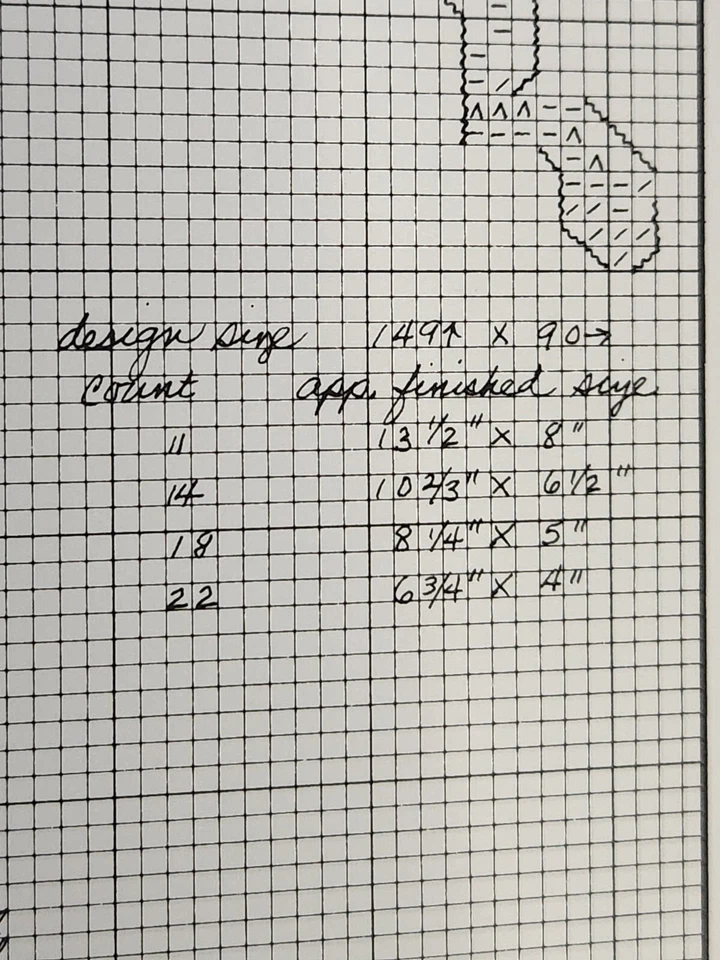 design size 149↑ x 90→
count app. finished size
11 13 1/2" x 8"
14 10 2/3" x 6 1/2"
18 8 1/4" x 5"
22 6 3/4" x 4"